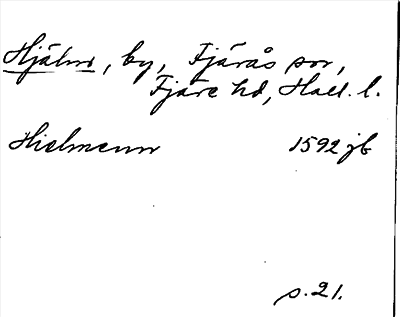 Hjälm, by, Fjärås sn,
Fjäre hd, Hall. l.
Hielmenn 1592 jb
s. 21.